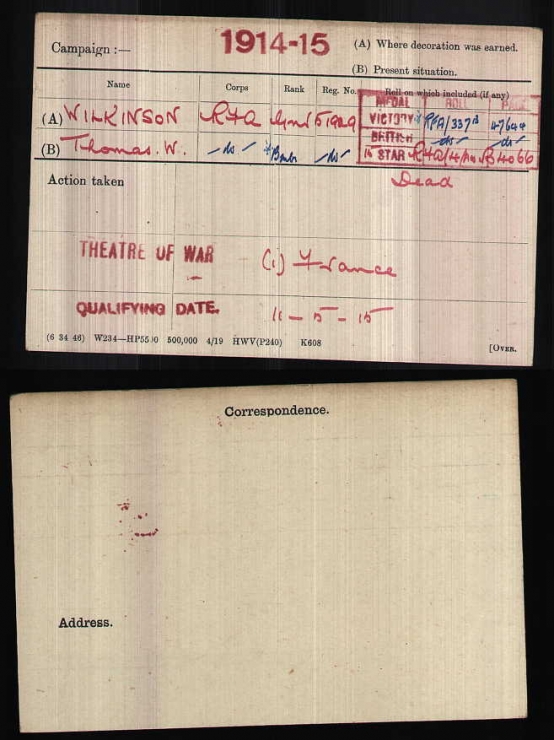 Campaign :— 1914-15 (A) Where decoration was earned.
(B) Present situation.
Name Corps Rank Reg. No. Roll on which included (if any)
MEDAL ROLL PAGE
(A) WILKINSON RFA Gnr 51929 VICTORY RFA/337B 47644
(B) Thomas. W. —do— *Bmbr —do— BRITISH —do— —do—
15 STAR RFA/4/AA B4066
Action taken Dead
THEATRE OF WAR (1) France
QUALIFYING DATE. 11-5-15
(6 34 46) W234—HP5500 500,000 4/19 HWV(P240) K608 [OVER.
Correspondence.
Address.